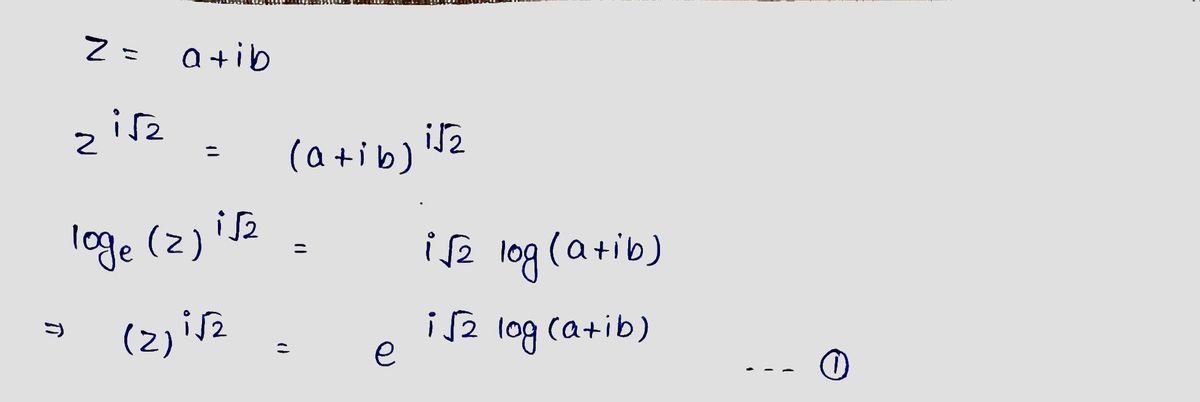 z = a+ib
z^{i√2} = (a+ib)^{i√2}
log_e (z)^{i√2} = i√2 log(a+ib)
⇒ (z)^{i√2} = e^{i√2 log(a+ib)} --- ①